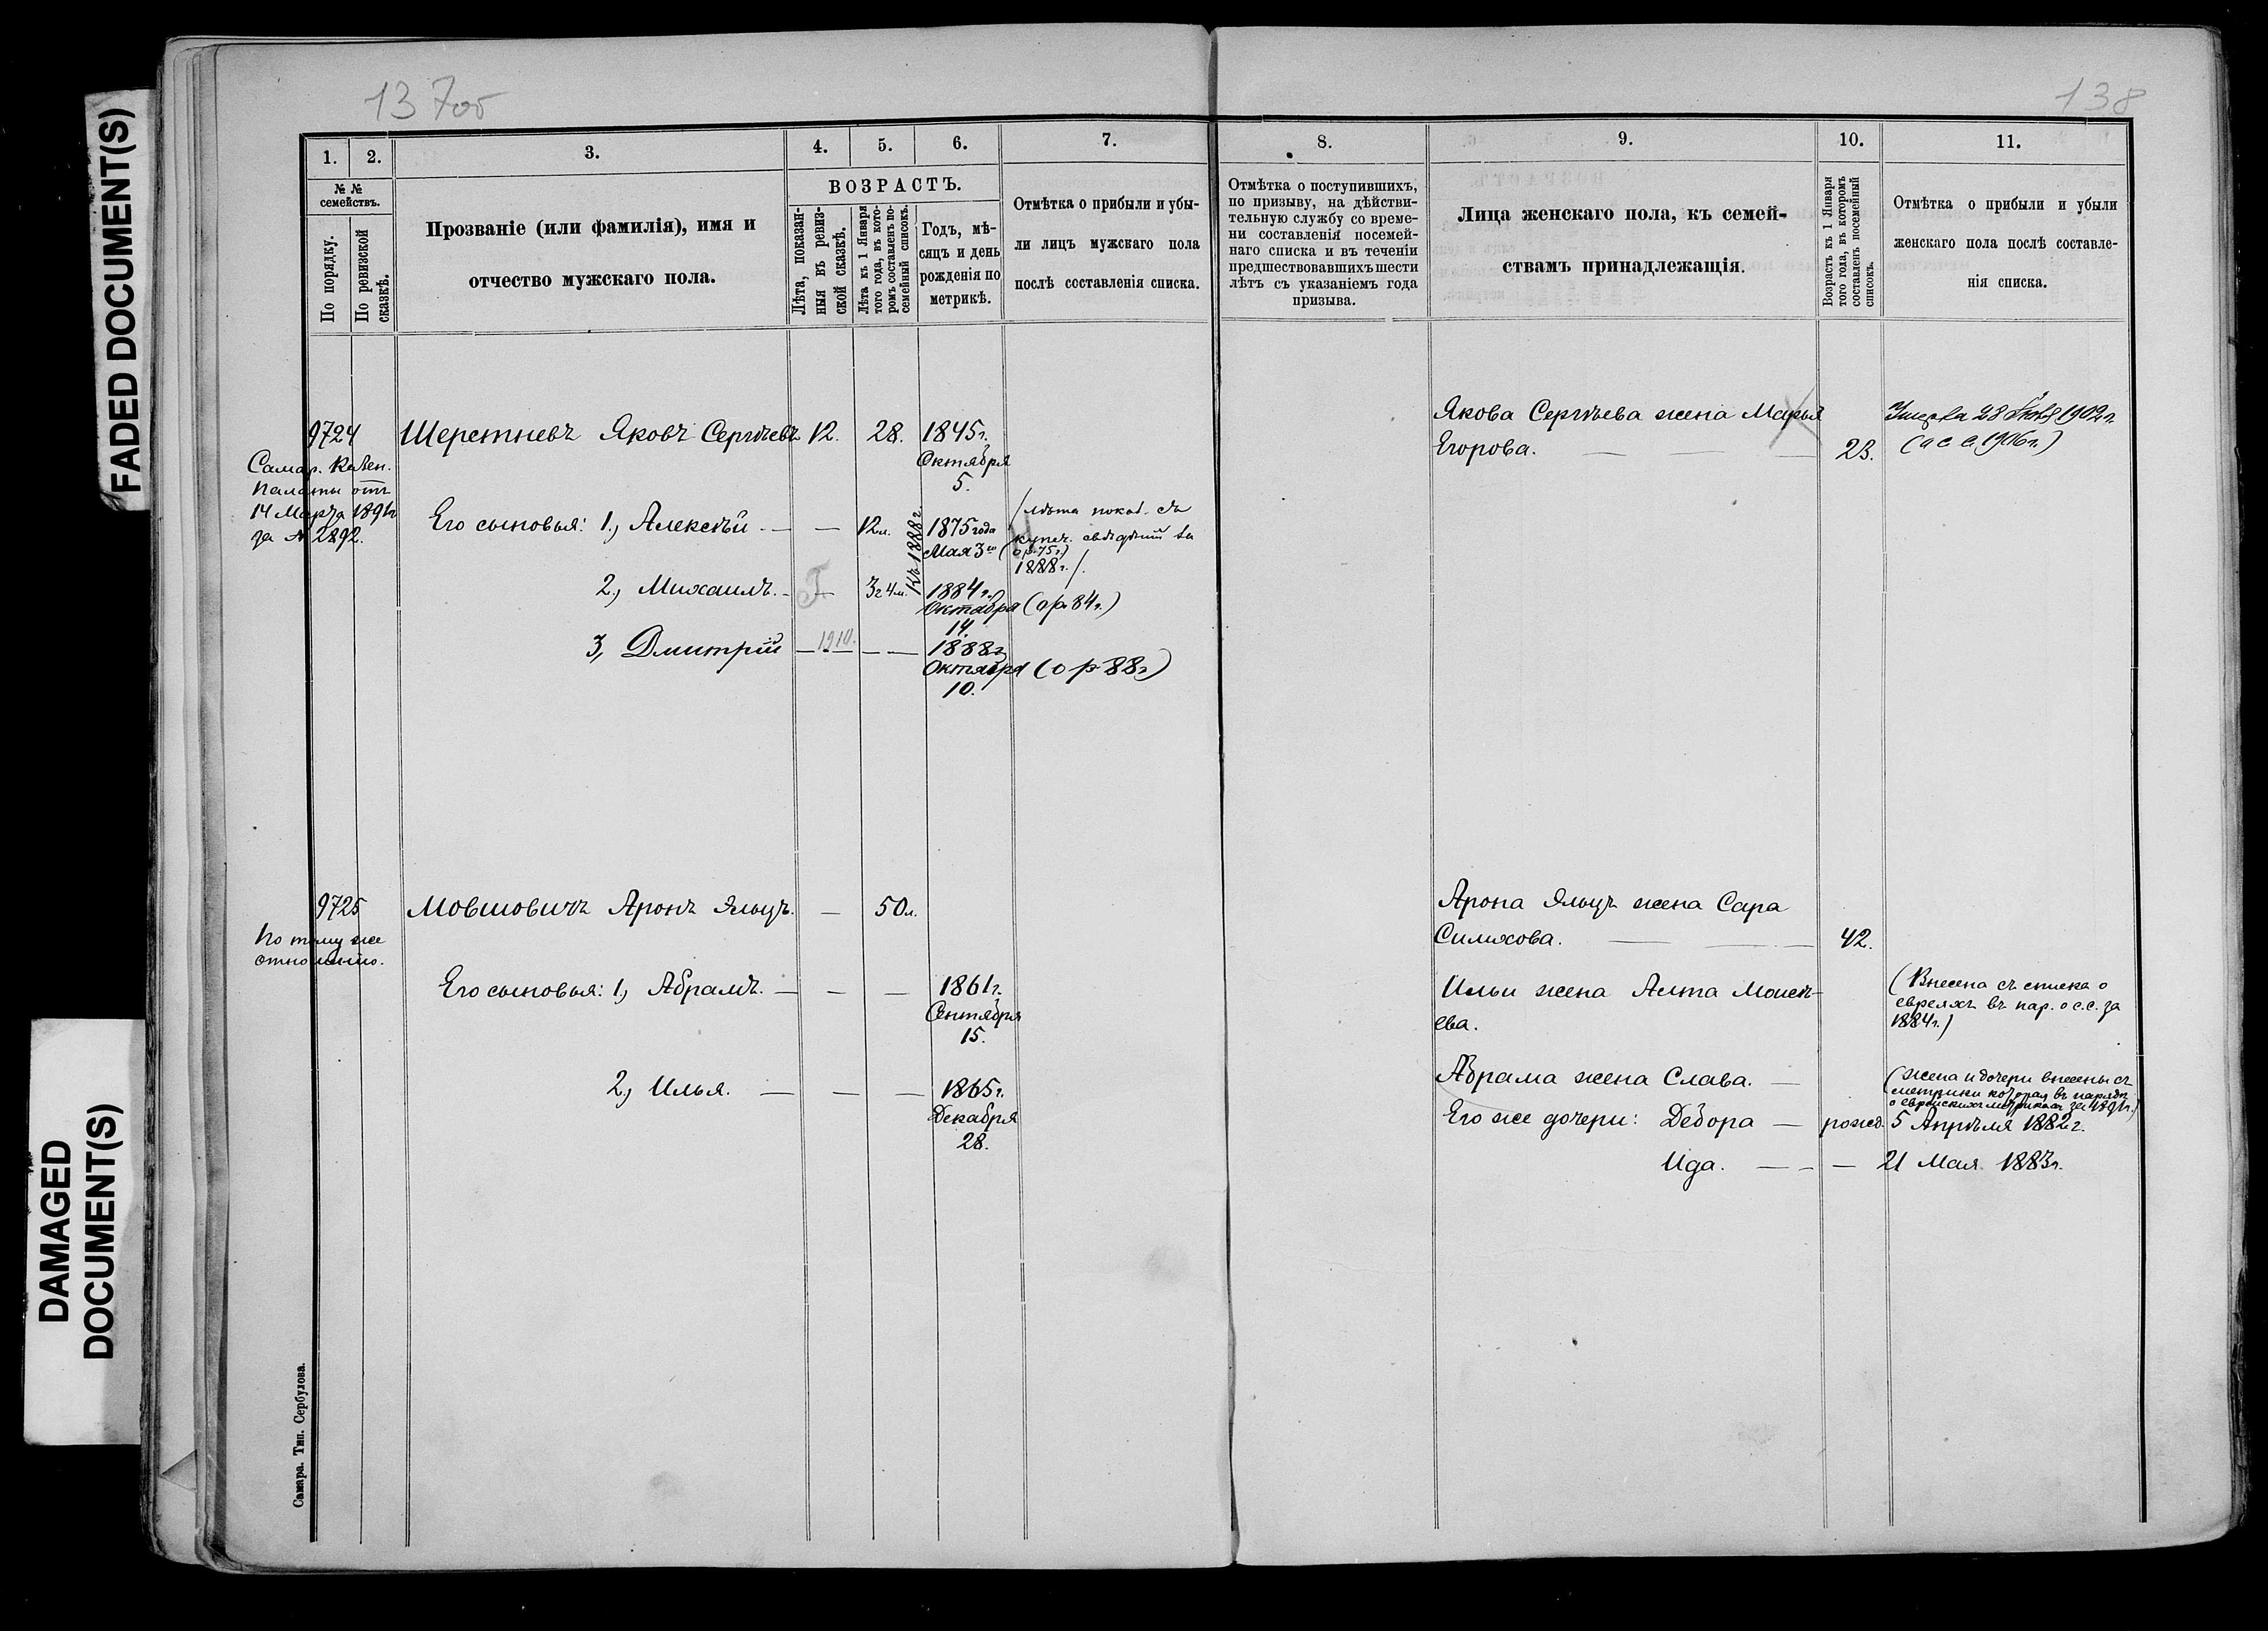 FADED DOCUMENT(S)
DAMAGED
DOCUMENT(S)
137об
138
1. 2. 3. 4. 5. 6. 7. 8. 9. 10. 11.
№ №
семействъ.
По порядку.
По ревизской
сказкѣ.
Прозваніе (или фамилія), имя и
отчество мужскаго пола.
ВОЗРАСТЪ.
Лѣта, показан-
ныя въ ревиз-
ской сказкѣ.
Лѣта къ 1 Января
того года, въ кото-
ромъ составленъ по-
семейный списокъ.
Годъ, мѣ-
сяцъ и день
рожденія по
метрикѣ.
Отмѣтка о прибыли и убы-
ли лицъ мужскаго пола
послѣ составленія списка.
Отмѣтка о поступившихъ,
по призыву, на дѣйстви-
тельную службу со време-
ни составленія посемей-
наго списка и въ теченіи
предшествовавшихъ шести
лѣтъ съ указаніемъ года
призыва.
Лица женскаго пола, къ семей-
ствамъ принадлежащія.
Возрастъ къ 1 Января
того года, въ которомъ
составленъ посемейный
списокъ.
Отмѣтка о прибыли и убыли
женскаго пола послѣ составле-
нія списка.
9724 Шеретневъ Яковъ Сергѣевъ 12. 28. 1845г.
Октября
5.
Самар. Казен.
Палаты отъ
14 Марта 1891г
за № 2892.
Его сыновья: 1., Алексѣй — — 12л. 1875 года
Мая 3го (ор. 75г.)
Къ 1888г.
/лѣта показ. съ
купеч. свѣдѣній за
1888г./.
2., Михаилъ. — Г — 3г 4м. 1884г.
Октября (ор. 84г.)
14.
3, Дмитрій — 1910. — — 1888г
Октября (ор 88г)
10.
Якова Сергѣева жена Марья
Егорова. — — 23.
Умерла 28 1902г.
(о с с. 1906г.)
9725 Мовшовичъ Аронъ Яльцъ. — 50л.
По тому же
отношенію.
Его сыновья: 1, Абрамъ. — — — 1861г.
Сентября
15.
2, Илья. — — — 1865г.
Декабря
28.
Арона Яльцъ жена Сара
Симхова. — — 42.
Ильи жена Алта Моисѣ-
ева.
(Внесена съ списка о
евреяхъ въ нар. о с.с. за
1884г.)
Абрама жена Слава. —
(Жена и дочери внесены съ
метрики которая въ нарядѣ
о еврейскихъ метрикахъ за 1891г.)
Его же дочери: Дебора — рожд. 5 Апрѣля 1882г.
Ида. — — — 21 Мая 1883г.
Самара. Тип. Сербулова.